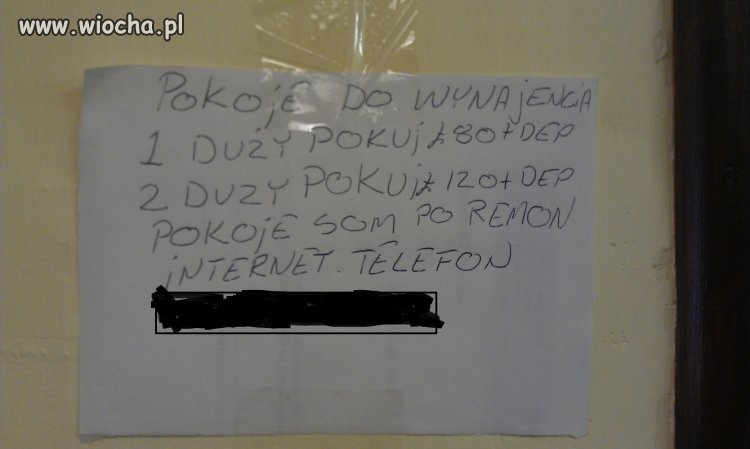 www.wiocha.pl
POKOJE DO WYNAJENCIA
1 DUŻY POKUJ £80+DEP
2 DUZY POKUJ £120+DEP
POKOJE SOM PO REMON
INTERNET. TELEFON